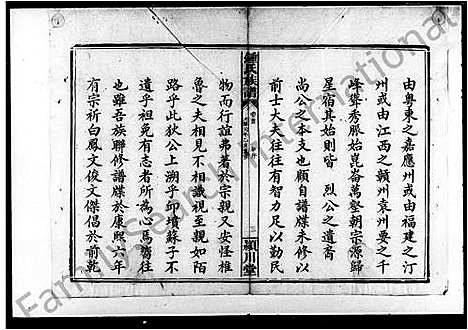 由粤東之嘉應州或由福建之汀
州或由江西之贛州袁州要之千
峰聳秀脉始崑崙萬壑朝宗源歸
星宿其始則皆 烈公之遺裔
尚公之本支也顧自譜牒未修以
前士大夫往往有智力足以勤民
鍾氏族譜
卷首
三
頴川堂
物而行誼弗著於宗親又安怪椎
魯之夫相見不相識視至親如陌
路乎此狄公上溯乎邱墳蘇子不
遺乎祖免有志者所為心焉嚮往
也雖吾族聯修譜牒於康熙六年
有宗祈白鳳文俊文傑倡於前乾
FamilySearch International